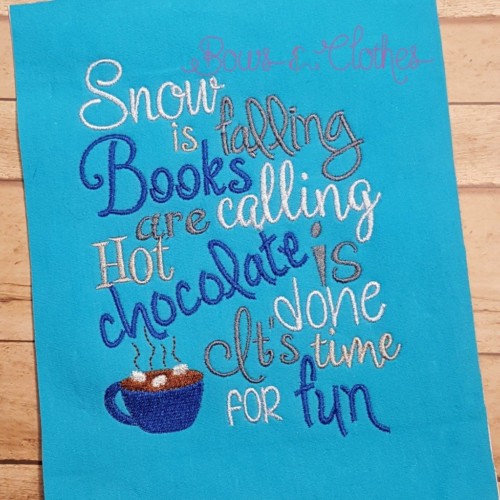 Bows & Clothes
Snow
is falling
Books
are calling
Hot
chocolate is
done
It's time
FOR fun